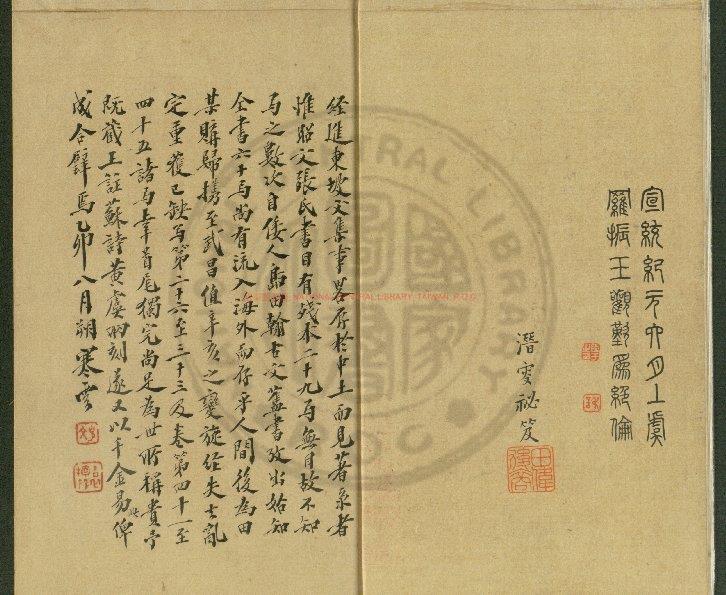 宣統紀元六月上虞
羅振玉觀歎爲絕倫
潛叟祕笈
田偉後裔
經進東坡文集事畧存於中土而見著錄者
惟昭文張氏書目有殘本二十九卷無目故不知
卷之數次自倭人島田翰古文舊書攷出始知
全書六十卷尚有流入海外而存乎人間後為田
某購歸攜至武昌值辛亥之變旋經失去亂
定重獲已缺卷第二十六至三十三及卷第四十一至
四十五諸卷幸首尾獨完尚足為世所稱貴予
既藏王註蘇詩黃虞兩刻遂又以千金易此俾
成合璧焉乙卯八月朔寒雲
NATIONAL CENTRAL LIBRARY, TAIWAN, R.O.C